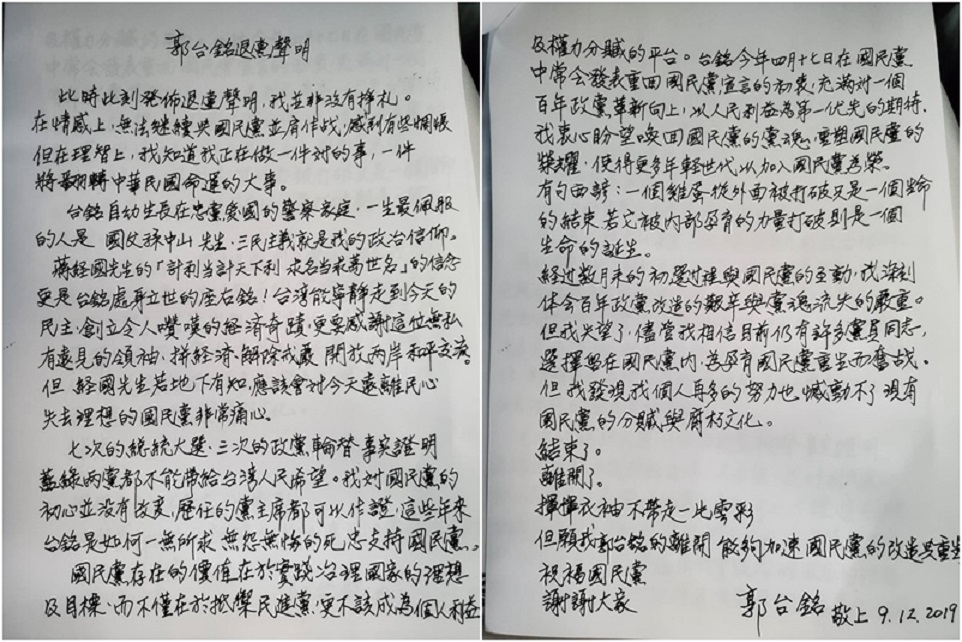 郭台銘退黨聲明
此時此刻發佈退黨聲明,我並非沒有掙札。
在情感上,無法继續與國民黨並肩作战,感到有些惆悵
但在理智上,我知道我正在做一件対的事,一件
將翻轉中華民國命運的大事。
台銘自幼生長在忠黨愛國的警察家庭,一生最佩服
的人是 國父孫中山先生,三民主義就是我的政治信仰。
蔣経國先生的「計利当計天下利 求名当求萬世名」的信念
更是台銘處身立世的座右銘!台湾能寧靜走到今天的
民主,創立令人嘆的経済奇蹟,更要感謝這位無私
有遠見的領袖,拼経济、解除戒嚴 開放两岸和平交流。
但 経國先生若地下有知,應該會对今天遠離民心
失去理想的國民黨非常痛心。
七次的総統大選,三次的政黨輪替,事实證明
藍綠两黨都不能帶給台湾人民希望。我对國民黨的
初心並没有改变,歷任的黨主席都可以作證,這些年来
台銘是如何一無所求 無怨無悔的死忠支持國民黨。
國民黨存在的價值在於實踐治理國家的理想
及目標,而不僅在於抵禦民進黨,更不該成為個人利益
及權力分贓的平台。台銘今年四月十七日在國民黨
中常会發表重回國民黨宣言的初衷,充滿对一個
百年政黨革新向上,以人民利益為第一优先的期待,
我衷心盼望喚回國民黨的黨魂,重塑國民黨的
榮耀,使得更多年輕世代以加入國民黨為榮。
有句西諺:一個雞蛋從外面被打破又是一個生命
的結束 若它被内部孕育的力量打破則是一個
生命的誕生。
経过数月来的初選过程與國民黨的互動,我深刻
体会百年政黨改造的艱辛與黨魂流失的嚴重。
但我失望了,儘管我相信目前仍有許多黨員同志,
選擇留在國民黨内,為孕育國民黨重生而奮战。
但我發現我個人再多的努力也憾動不了現有
國民黨的分贓與腐朽文化。
結束了。
離開了。
揮揮衣袖不帶走一片雲彩
但願我郭台銘的離開 能夠加速國民黨的改造與重生
祝福國民黨
謝謝大家
郭台銘 敬上 9.12.2019